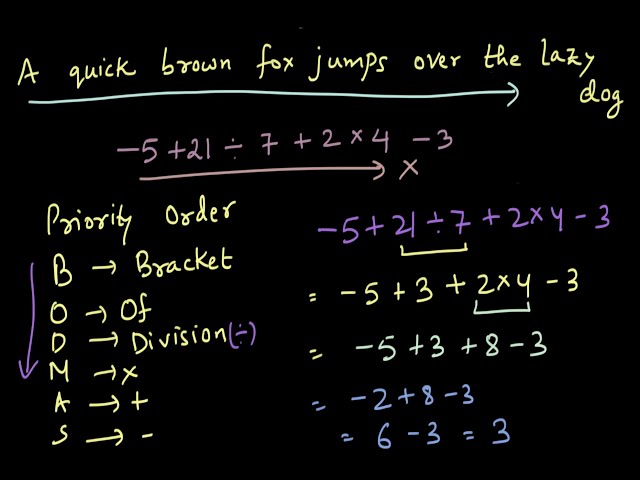 A quick brown fox jumps over the lazy
dog
-5+21÷7+2×4-3
×
Priority Order
B → Bracket
O → Of
D → Division(÷)
M → ×
A → +
S → -
-5+21÷7+2×4-3
= -5+3+2×4-3
= -5+3+8-3
= -2+8-3
= 6-3=3